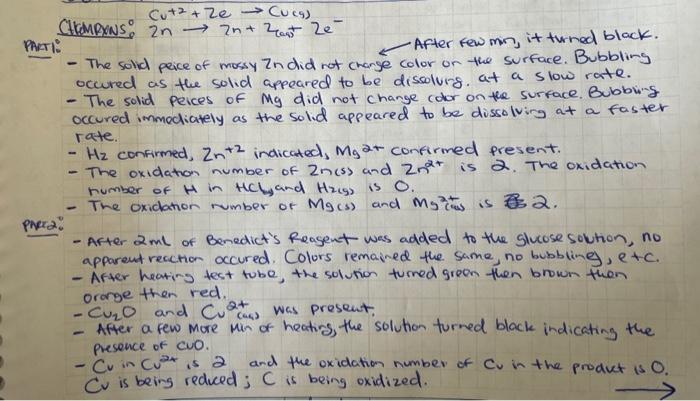 Cu+2 + 2e → Cu(s)
CHAMPXNS: Zn → Zn + 2(aq)+ 2e-
← After few min, it turned black.
PART 1:
- The solid peice of mossy Zn did not change color on the surface. Bubbling
occured as the solid appeared to be dissolving. at a slow rate.
- The solid peices of Mg did not change color on the surface. Bubbling
occured immediately as the solid appeared to be dissolving at a faster
rate.
- H2 confirmed, Zn+2 indicated, Mg2+ confirmed present.
- The oxidation number of Zn(s) and Zn2+ is 2. The oxidation
number of H in HCl and H2(g) is 0.
- The oxidation number of Mg(s) and Mg2+(aq) is 2.
PART 2:
- After 2mL of Benedict's Reagent was added to the glucose solution, no
apparent reaction occured. Colors remained the same, no bubbling, etc.
- After heating test tube, the solution turned green then brown then
orange then red.
- Cu2O and Cu2+(aq) was present.
- After a few more min of heating, the solution turned black indicating the
presence of CuO.
- Cu in Cu2+ is 2 and the oxidation number of Cu in the product is 0.
Cu is being reduced; C is being oxidized. →